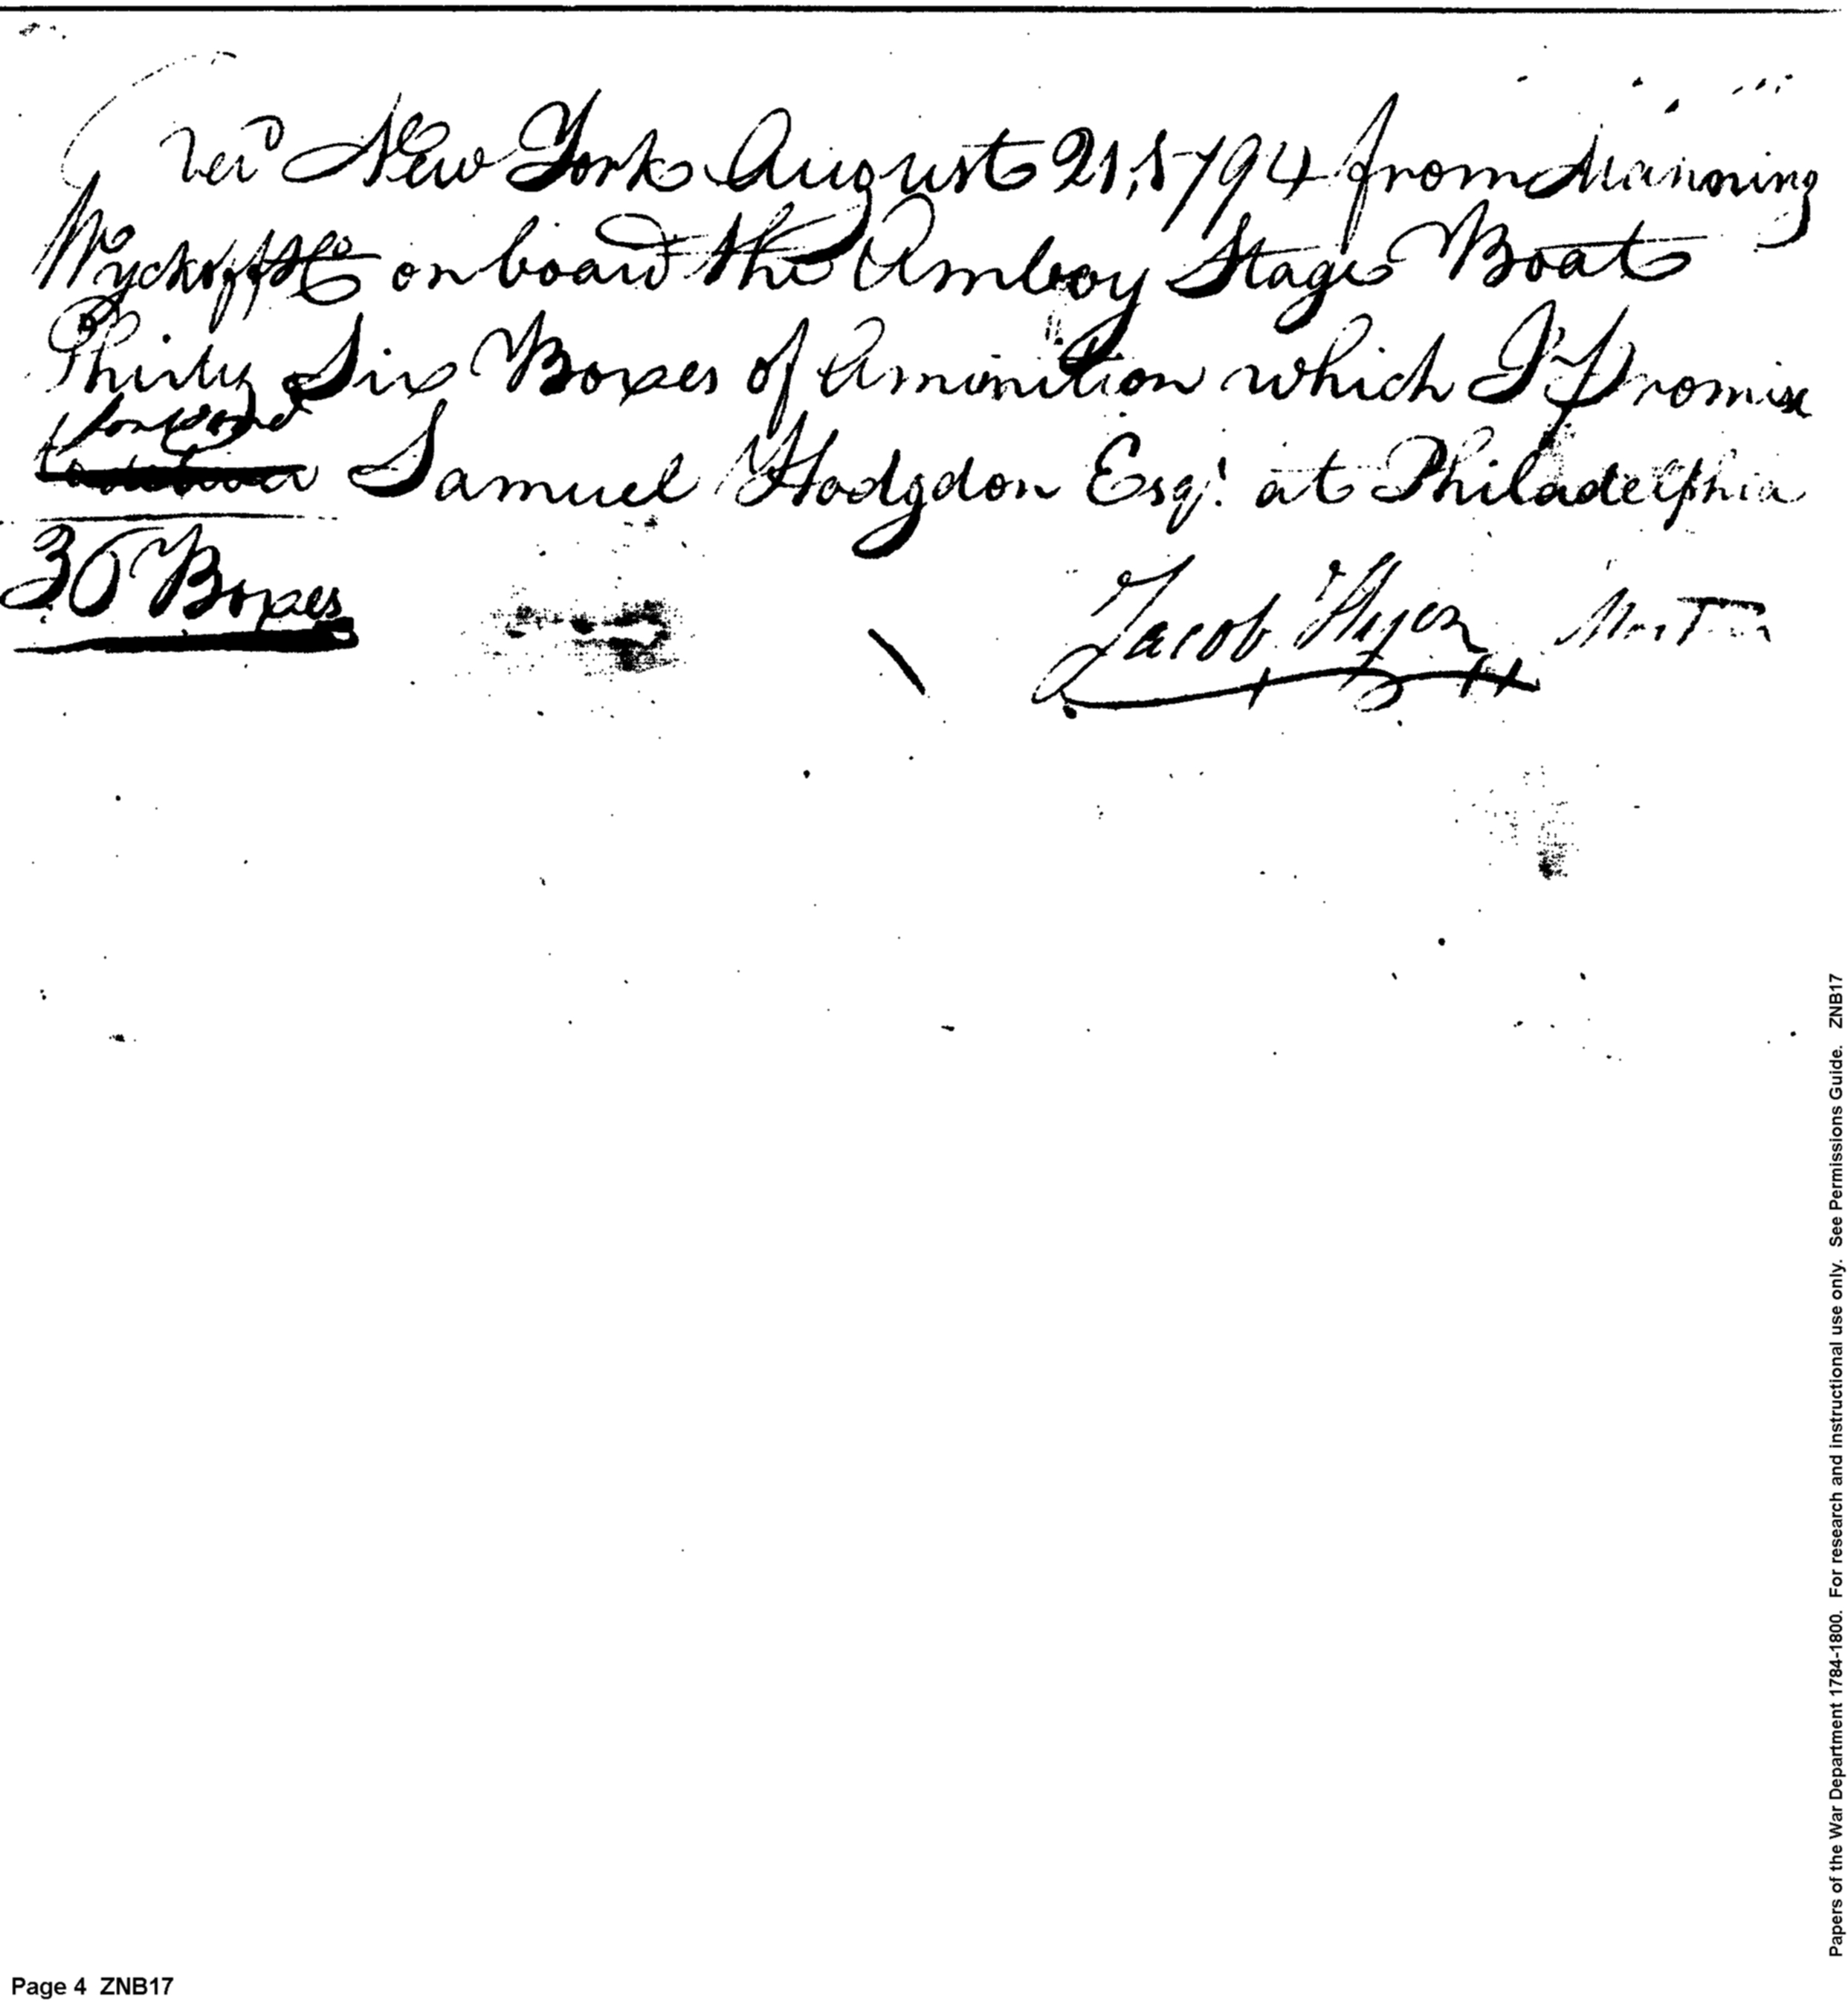 Rec'd New York August 21, 1794 from Manning
Wyckoff on board the Amboy Stage Boat
Thirty Six Boxes of Amunition which I Promise
to
Samuel Hodgdon Esqr at Philadelphia
36 Boxes
Jacob Hyer
Papers of the War Department 1784-1800. For research and instructional use only. See Permissions Guide. ZNB17
Page 4 ZNB17